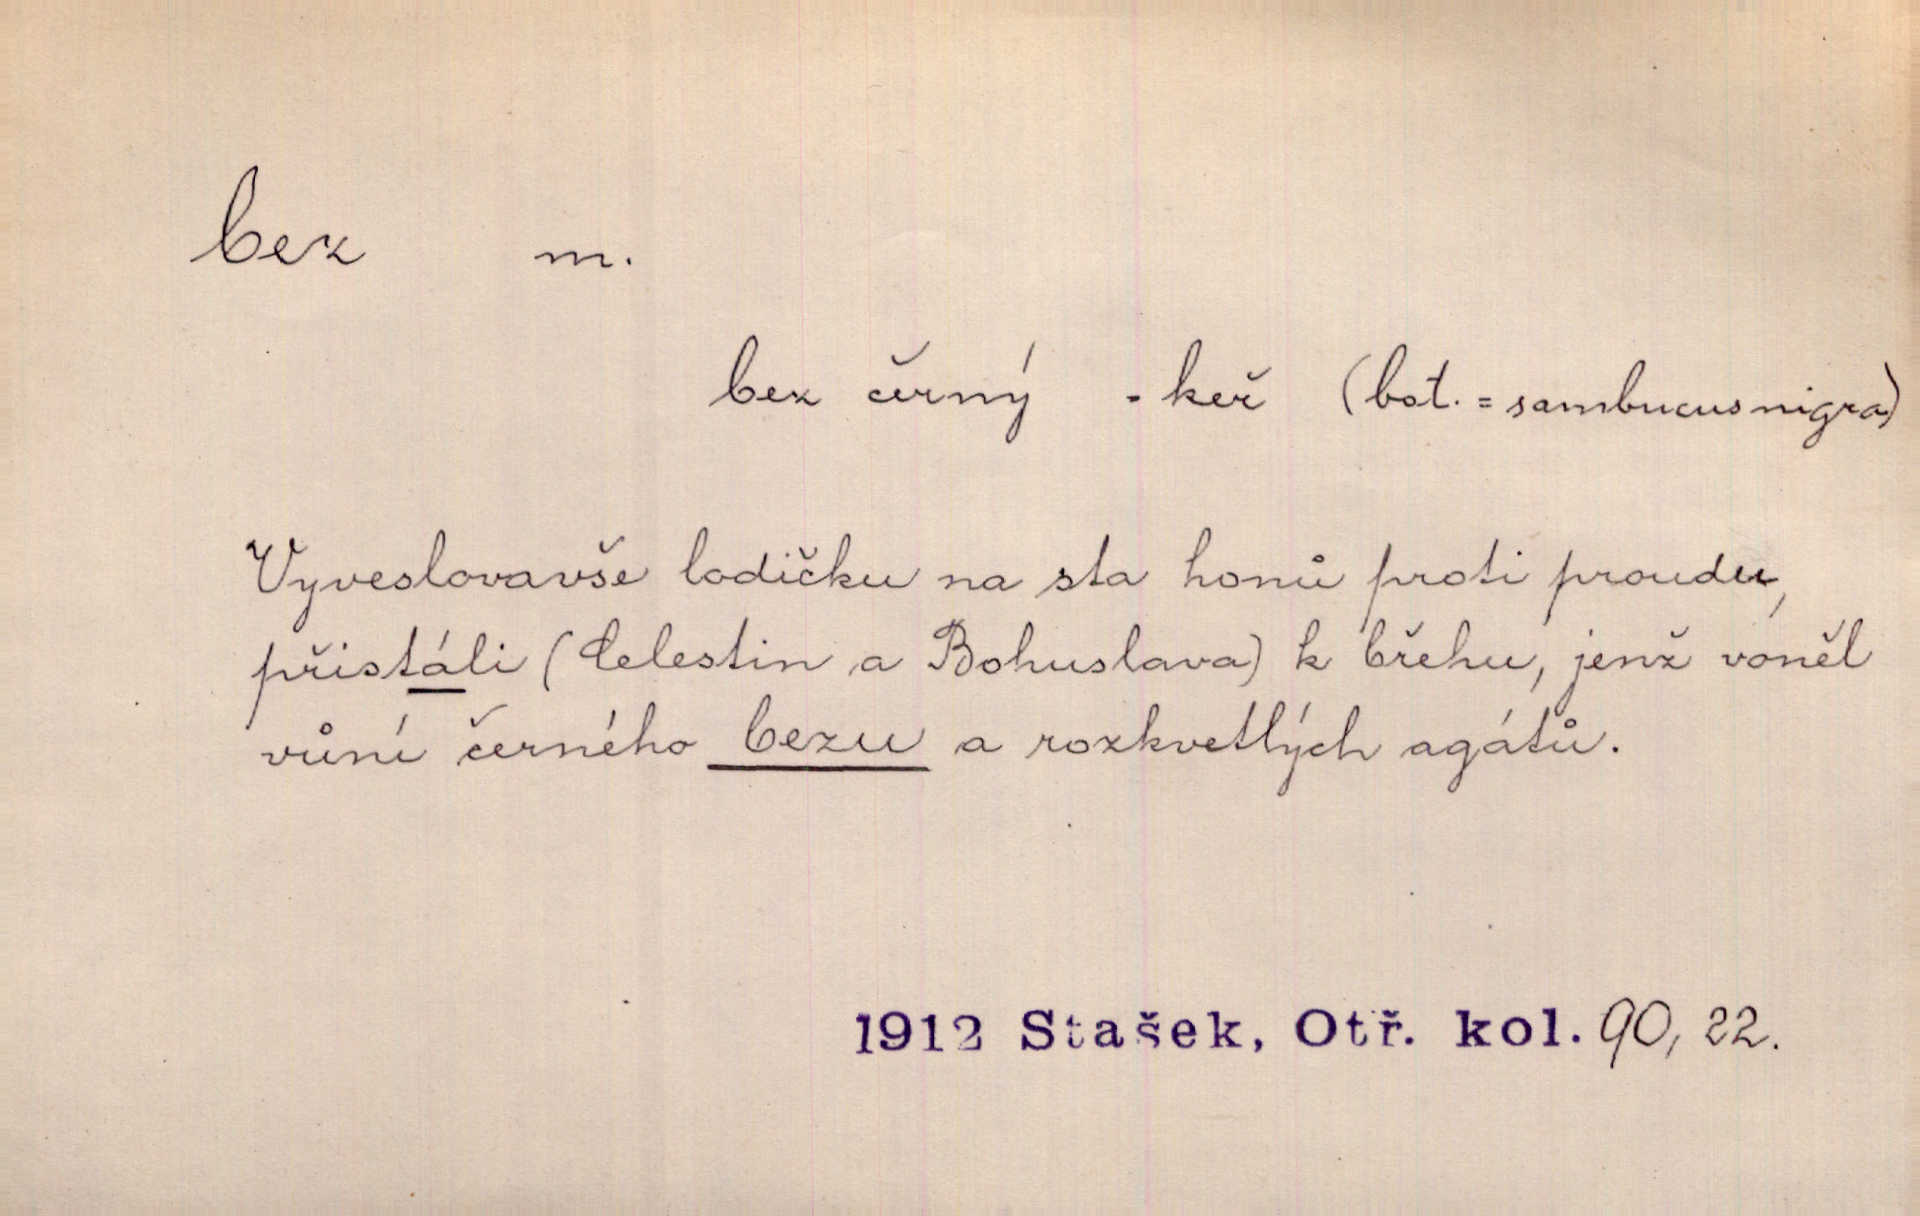 bez m.
bez černý - keř (bot. = sambucus nigra)
Vyveslovavše lodičku na sta honů proti proudu,
přistáli (Celestin a Bohuslava) k břehu, jenž voněl
vůní černého bezu a rozkvetlých agátů.
1912 Stašek, Otř. kol. 90, 22.